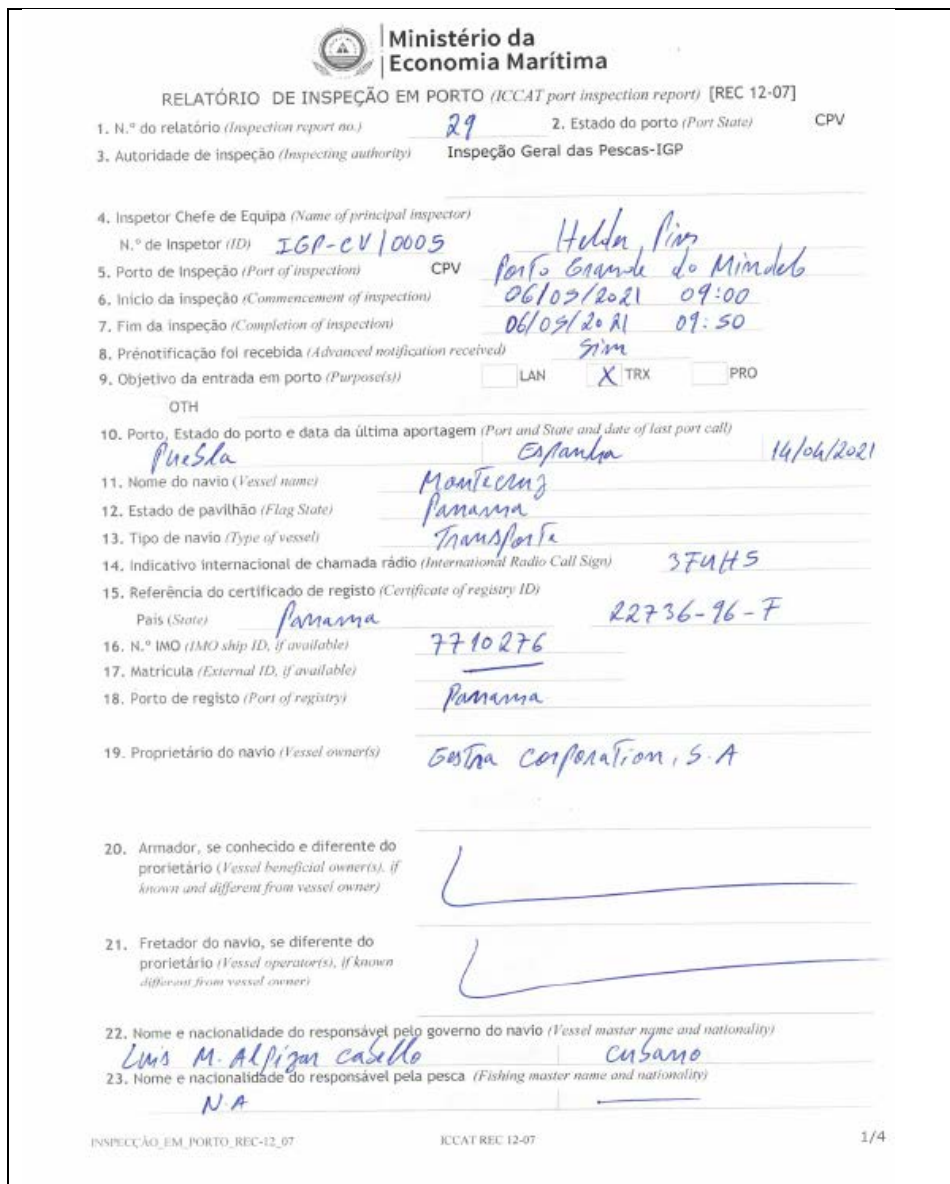 Ministério da
Economia Marítima
RELATÓRIO DE INSPEÇÃO EM PORTO (ICCAT port inspection report) [REC 12-07]
1. N.º do relatório (Inspection report no.) 29 2. Estado do porto (Port State) CPV
3. Autoridade de inspeção (Inspecting authority) Inspeção Geral das Pescas-IGP
4. Inspetor Chefe de Equipa (Name of principal inspector)
N.º de Inspetor (ID) IGP-CV/0005 Helder Pires
5. Porto de Inspeção (Port of inspection) CPV Porto Grande do Mindelo
6. Início da inspeção (Commencement of inspection) 06/05/2021 09:00
7. Fim da inspeção (Completion of inspection) 06/05/2021 09:50
8. Prénotificação foi recebida (Advanced notification received) Sim
9. Objetivo da entrada em porto (Purpose(s)) LAN X TRX PRO
OTH
10. Porto, Estado do porto e data da última aportagem (Port and State and date of last port call)
Puebla Espanha 14/04/2021
11. Nome do navio (Vessel name) Montecruz
12. Estado de pavilhão (Flag State) Panama
13. Tipo de navio (Type of vessel) Transporte
14. Indicativo internacional de chamada rádio (International Radio Call Sign) 3FUH5
15. Referência do certificado de registo (Certificate of registry ID)
País (State) Panama 22736-96-F
16. N.º IMO (IMO ship ID, if available) 7710276
17. Matrícula (External ID, if available)
18. Porto de registo (Port of registry) Panama
19. Proprietário do navio (Vessel owner(s)) Gestra Corporation, S.A
20. Armador, se conhecido e diferente do
prorietário (Vessel beneficial owner(s), if
known and different from vessel owner)
21. Fretador do navio, se diferente do
prorietário (Vessel operator(s), if known
different from vessel owner)
22. Nome e nacionalidade do responsável pelo governo do navio (Vessel master name and nationality)
Luis M. Alpizar Cabello Cubano
23. Nome e nacionalidade do responsável pela pesca (Fishing master name and nationality)
N.A
INSPECÇÃO_EM_PORTO_REC-12_07 ICCAT REC 12-07 1/4